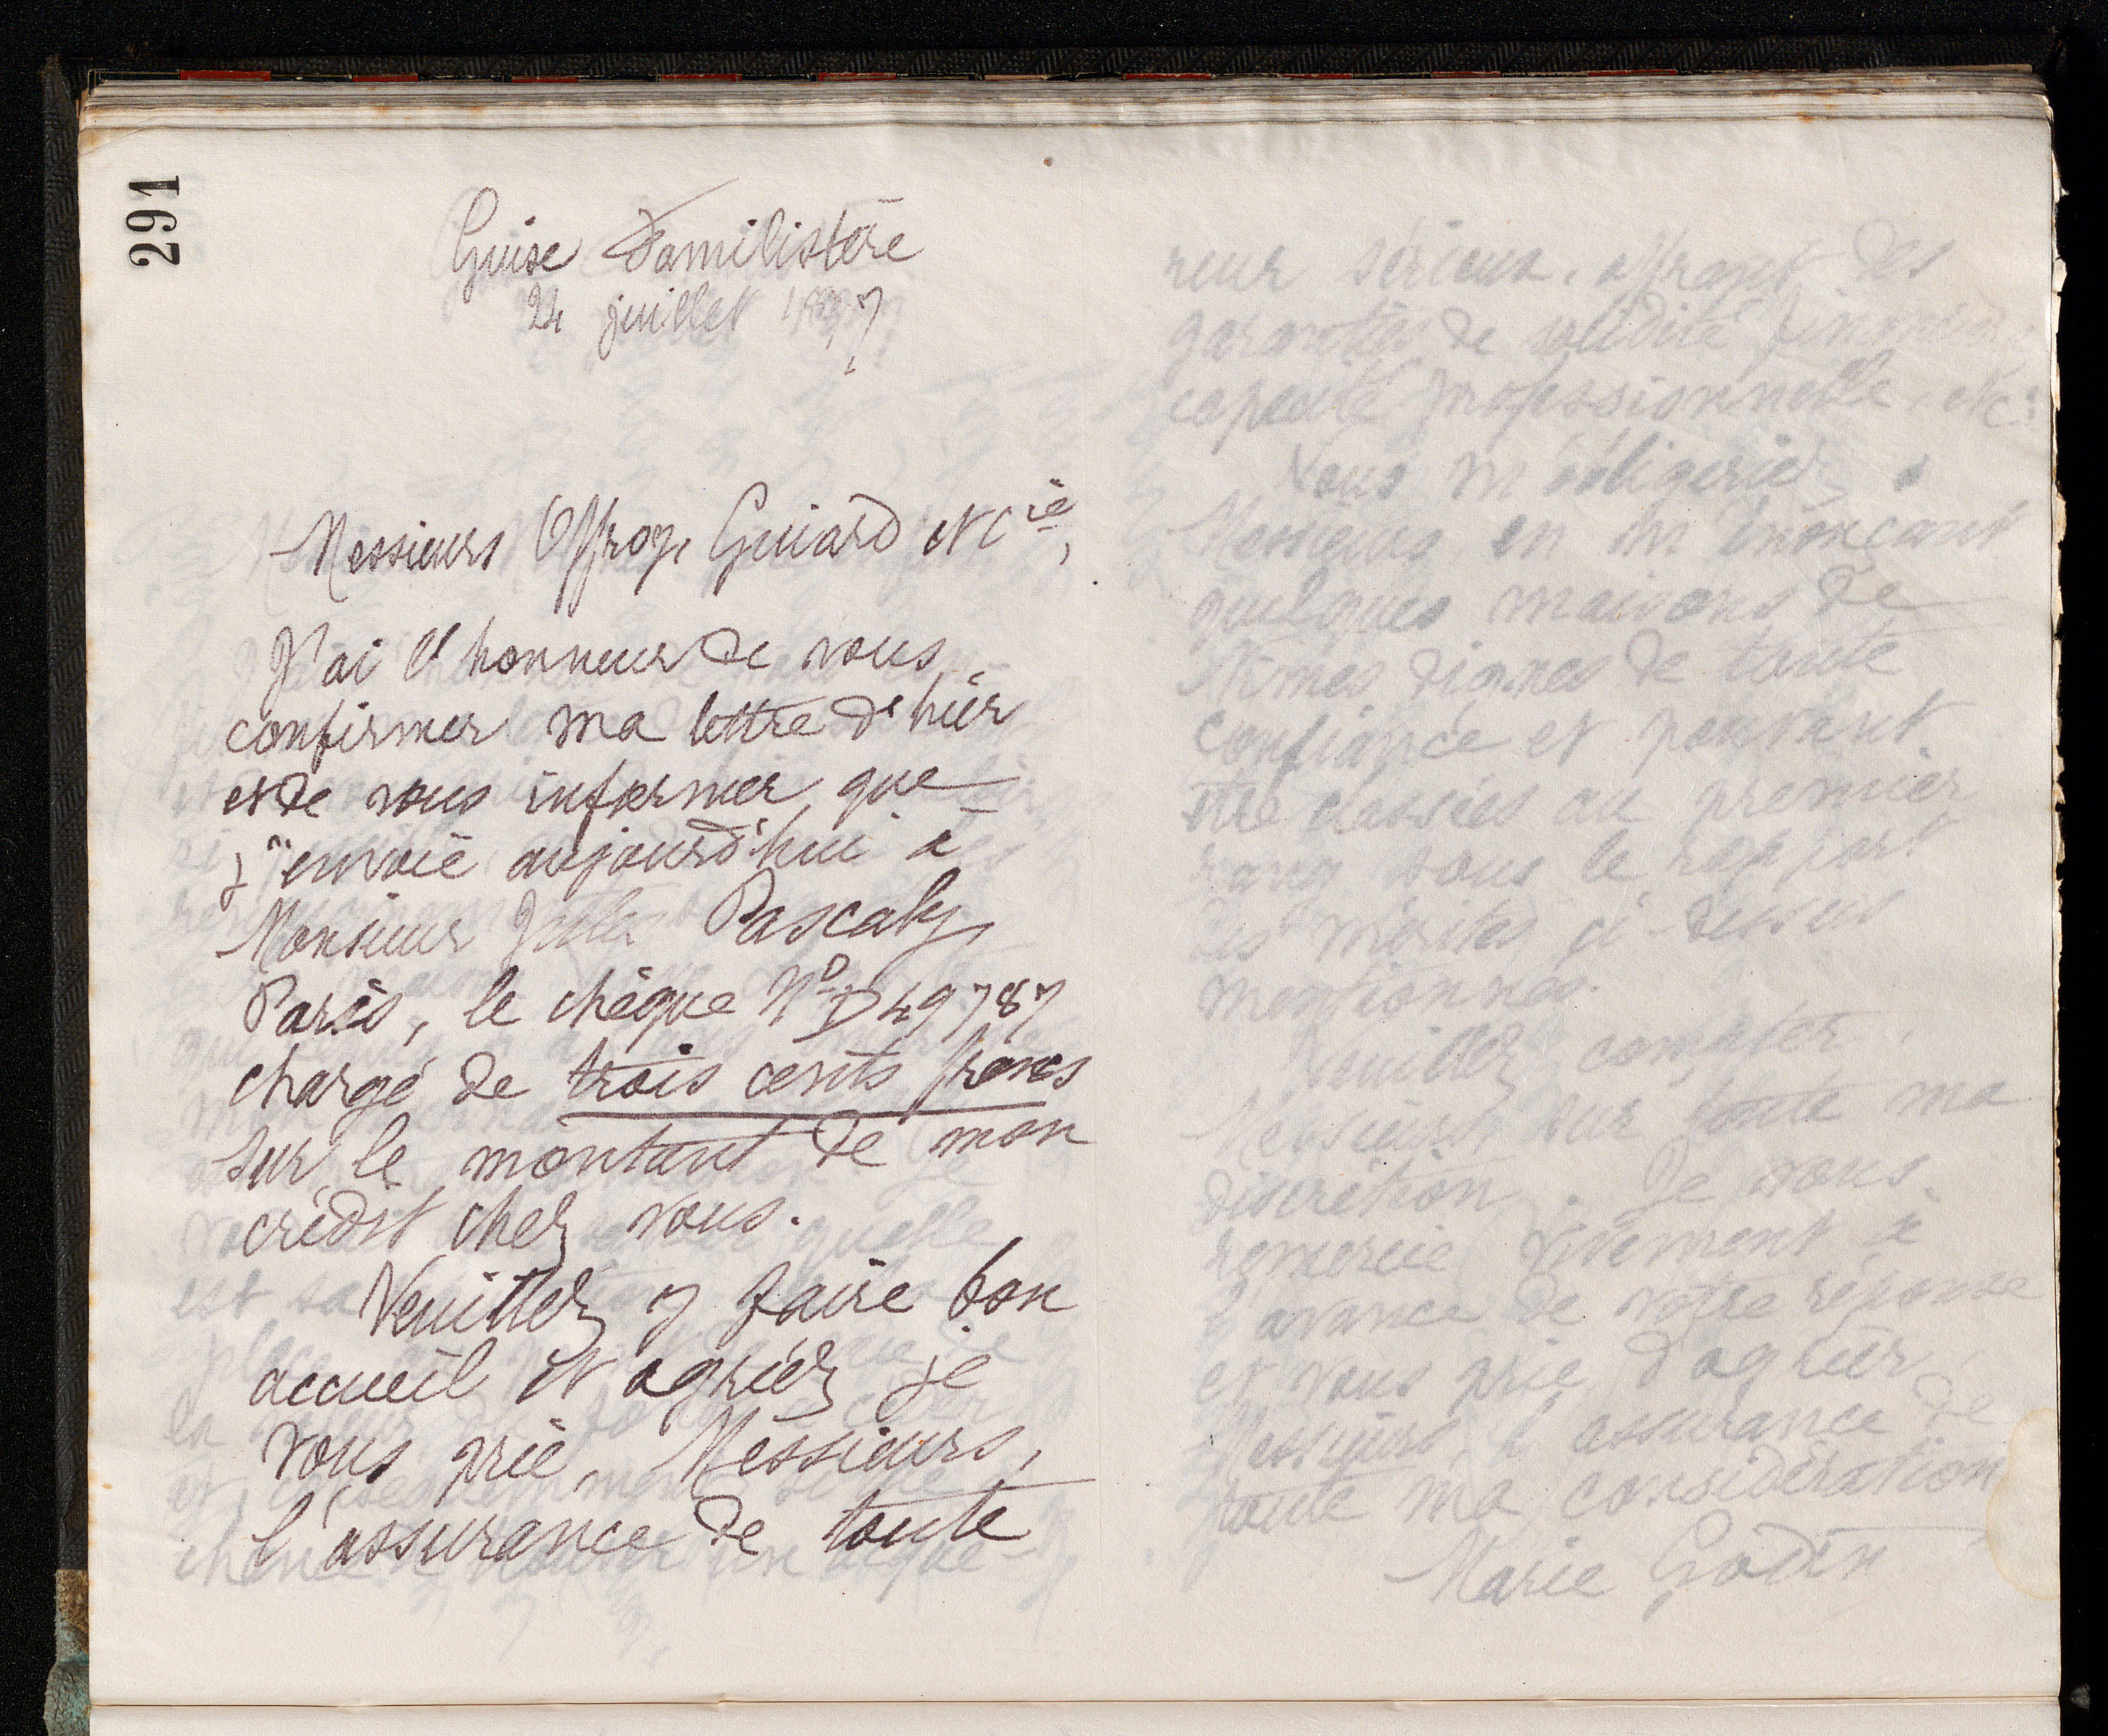 291
Guise Familistère
24 juillet 1897
Messieurs Offroy, Guiard et Cie,
J'ai l'honneur de vous
confirmer ma lettre d'hier
et de vous informer que
j'envoie aujourd'hui à
Monsieur Jules Pascaly,
Paris, le chèque No D49787
chargé de trois cents francs
sur le montant de mon
crédit chez vous.
Veuillez y faire bon
accueil et agréer je
vous prie, Messieurs,
l'assurance de toute
neur sérieux, offrant des
garanties de solidité
capacité professionnelle, etc.
Vous m'obligeriez
Messieurs en m'énonçant
quelques maisons de
Nîmes dignes de toute
confiance et pouvant
être classées au premier
rang sous le rapport
des mérites ci-dessus
mentionnés.
Veuillez compter,
Messieurs sur toute ma
discrétion. Je vous
remercie vivement à
l'avance de votre réponse
et vous prie d'agréer
Messieurs l'assurance de
toute ma considération
Marie Godin